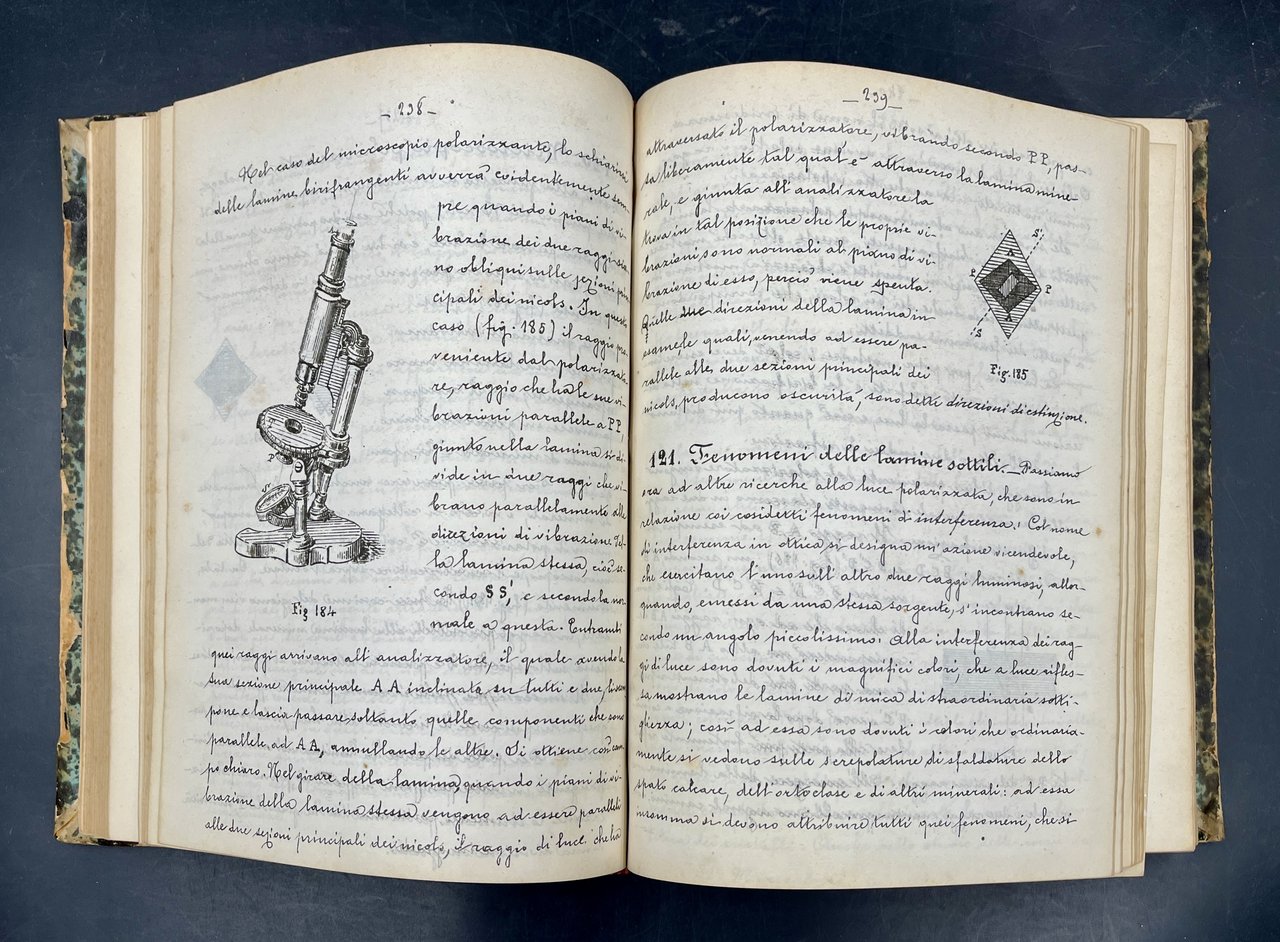 - 238 -
Nel caso del microscopio polarizzante, lo schiarirsi
delle lamine birifrangenti avverrà evidentemente sem-
pre quando i piani di vi-
brazione dei due raggi sia-
no obliqui sulle sezioni prin-
cipali dei nicols. In questo
caso (fig. 185) il raggio pro-
veniente dal polarizzato-
re, raggio che ha le sue vi-
brazioni parallele a PP,
giunto nella lamina si di-
vide in due raggi che vi-
brano parallelamente alle
direzioni di vibrazione del-
la lamina stessa, cioè se-
condo SS', e secondo la nor-
male a questa. Entrambi
P
S
Fig 184
quei raggi arrivano all'analizzatore, il quale avendo la
sua sezione principale AA inclinata su tutti e due, li scom-
pone e lascia passare soltanto quelle componenti che sono
parallele ad AA, annullando le altre. Si ottiene così cam-
po chiaro. Nel girare della lamina, quando i piani di vi-
brazione della lamina stessa vengono ad essere paralleli
alle due sezioni principali dei nicols, il raggio di luce che ha
- 239 -
attraversato il polarizzatore, vibrando secondo PP, pas-
sa liberamente tal qual'è attraverso la lamina mine-
rale, e giunta all'analizzatore la
trova in tal posizione che le proprie vi-
brazioni sono normali al piano di vi-
brazione di esso, perciò viene spenta.
Quelle due direzioni della lamina in
esame, le quali, venendo ad essere pa-
rallele alle due sezioni principali dei
nicols, producono oscurità, sono dette direzioni di estinzione.
S'
A
P
P
A
S
Fig. 185
121. Fenomeni delle lamine sottili. _ Passiamo
ora ad altre ricerche alla luce polarizzata, che sono in
relazione coi cosidetti fenomeni di interferenza. Col nome
di interferenza in ottica si designa un'azione vicendevole,
che esercitano l'uno sull'altro due raggi luminosi, allor-
quando, emessi da una stessa sorgente, s'incontrano se-
condo un angolo piccolissimo. Alla interferenza dei rag-
gi di luce sono dovuti i magnifici colori, che a luce rifles-
sa mostrano le lamine di mica di straordinaria sotti-
gliezza; così ad essa sono dovuti i colori che ordinaria-
mente si vedono sulle screpolature di sfaldature dello
spato calcare, dell'ortoclase e di altri minerali: ad essa
insomma si devono attribuire tutti quei fenomeni, che si